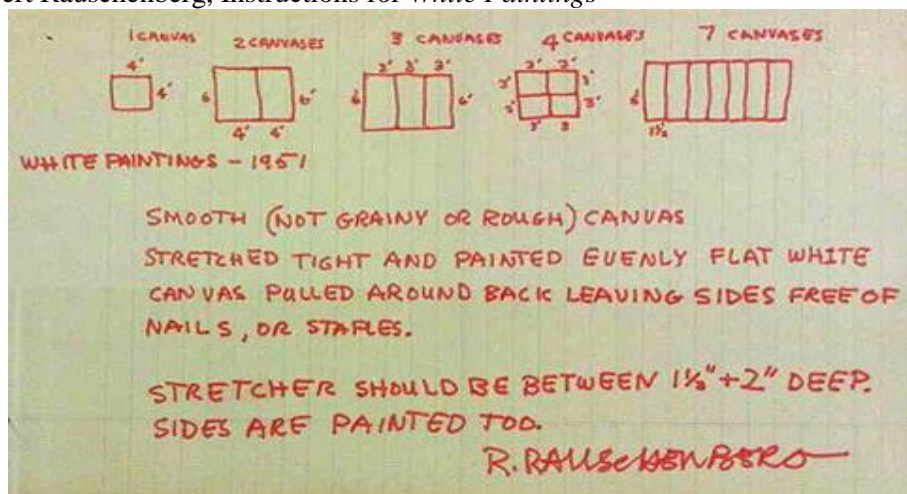 ert Rauschenberg, Instructions for White Paintings
1 CANVAS 2 CANVASES 3 CANVASES 4 CANVASES 7 CANVASES
4' 3' 3' 3' 3' 3'
4' 6 6' 6 6' 3' 3' 6
3' 3'
4' 4' 3' 3 1½
WHITE PAINTINGS - 1951
SMOOTH (NOT GRAINY OR ROUGH) CANVAS
STRETCHED TIGHT AND PAINTED EVENLY FLAT WHITE
CANVAS PULLED AROUND BACK LEAVING SIDES FREE OF
NAILS, OR STAPLES.
STRETCHER SHOULD BE BETWEEN 1½"+2" DEEP.
SIDES ARE PAINTED TOO.
R. RAUSCHENBERG